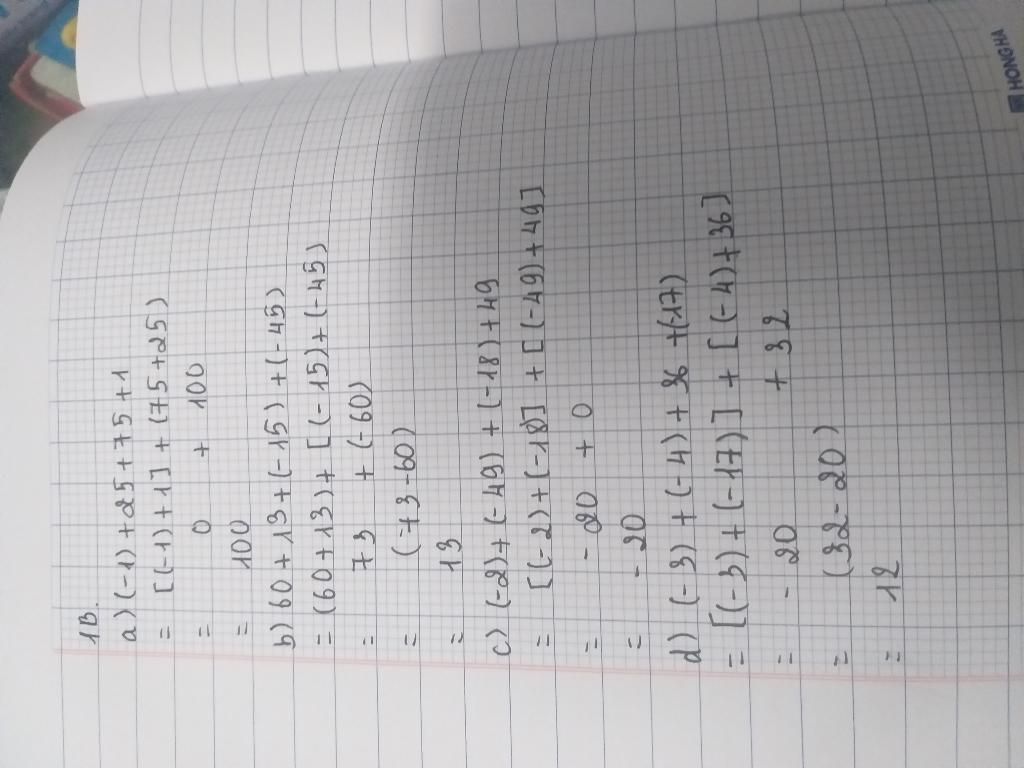 1B.
a) (-1) + 25 + 75 + 1
= [(-1) + 1] + (75 + 25)
= 0 + 100
= 100
b) 60 + 13 + (-15) + (-45)
= (60 + 13) + [(-15) + (-45)
= 73 + (-60)
= (73 - 60)
= 13
c) (-2) + (-49) + (-18) + 49
= [(-2) + (-18] + [(-49) + 49]
= - 20 + 0
= - 20
d) (-3) + (-4) + 36 + (17)
= [(-3) + (-17)] + [(-4) + 36]
= - 20 + 32
= (32 - 20)
= 12
HONG HA